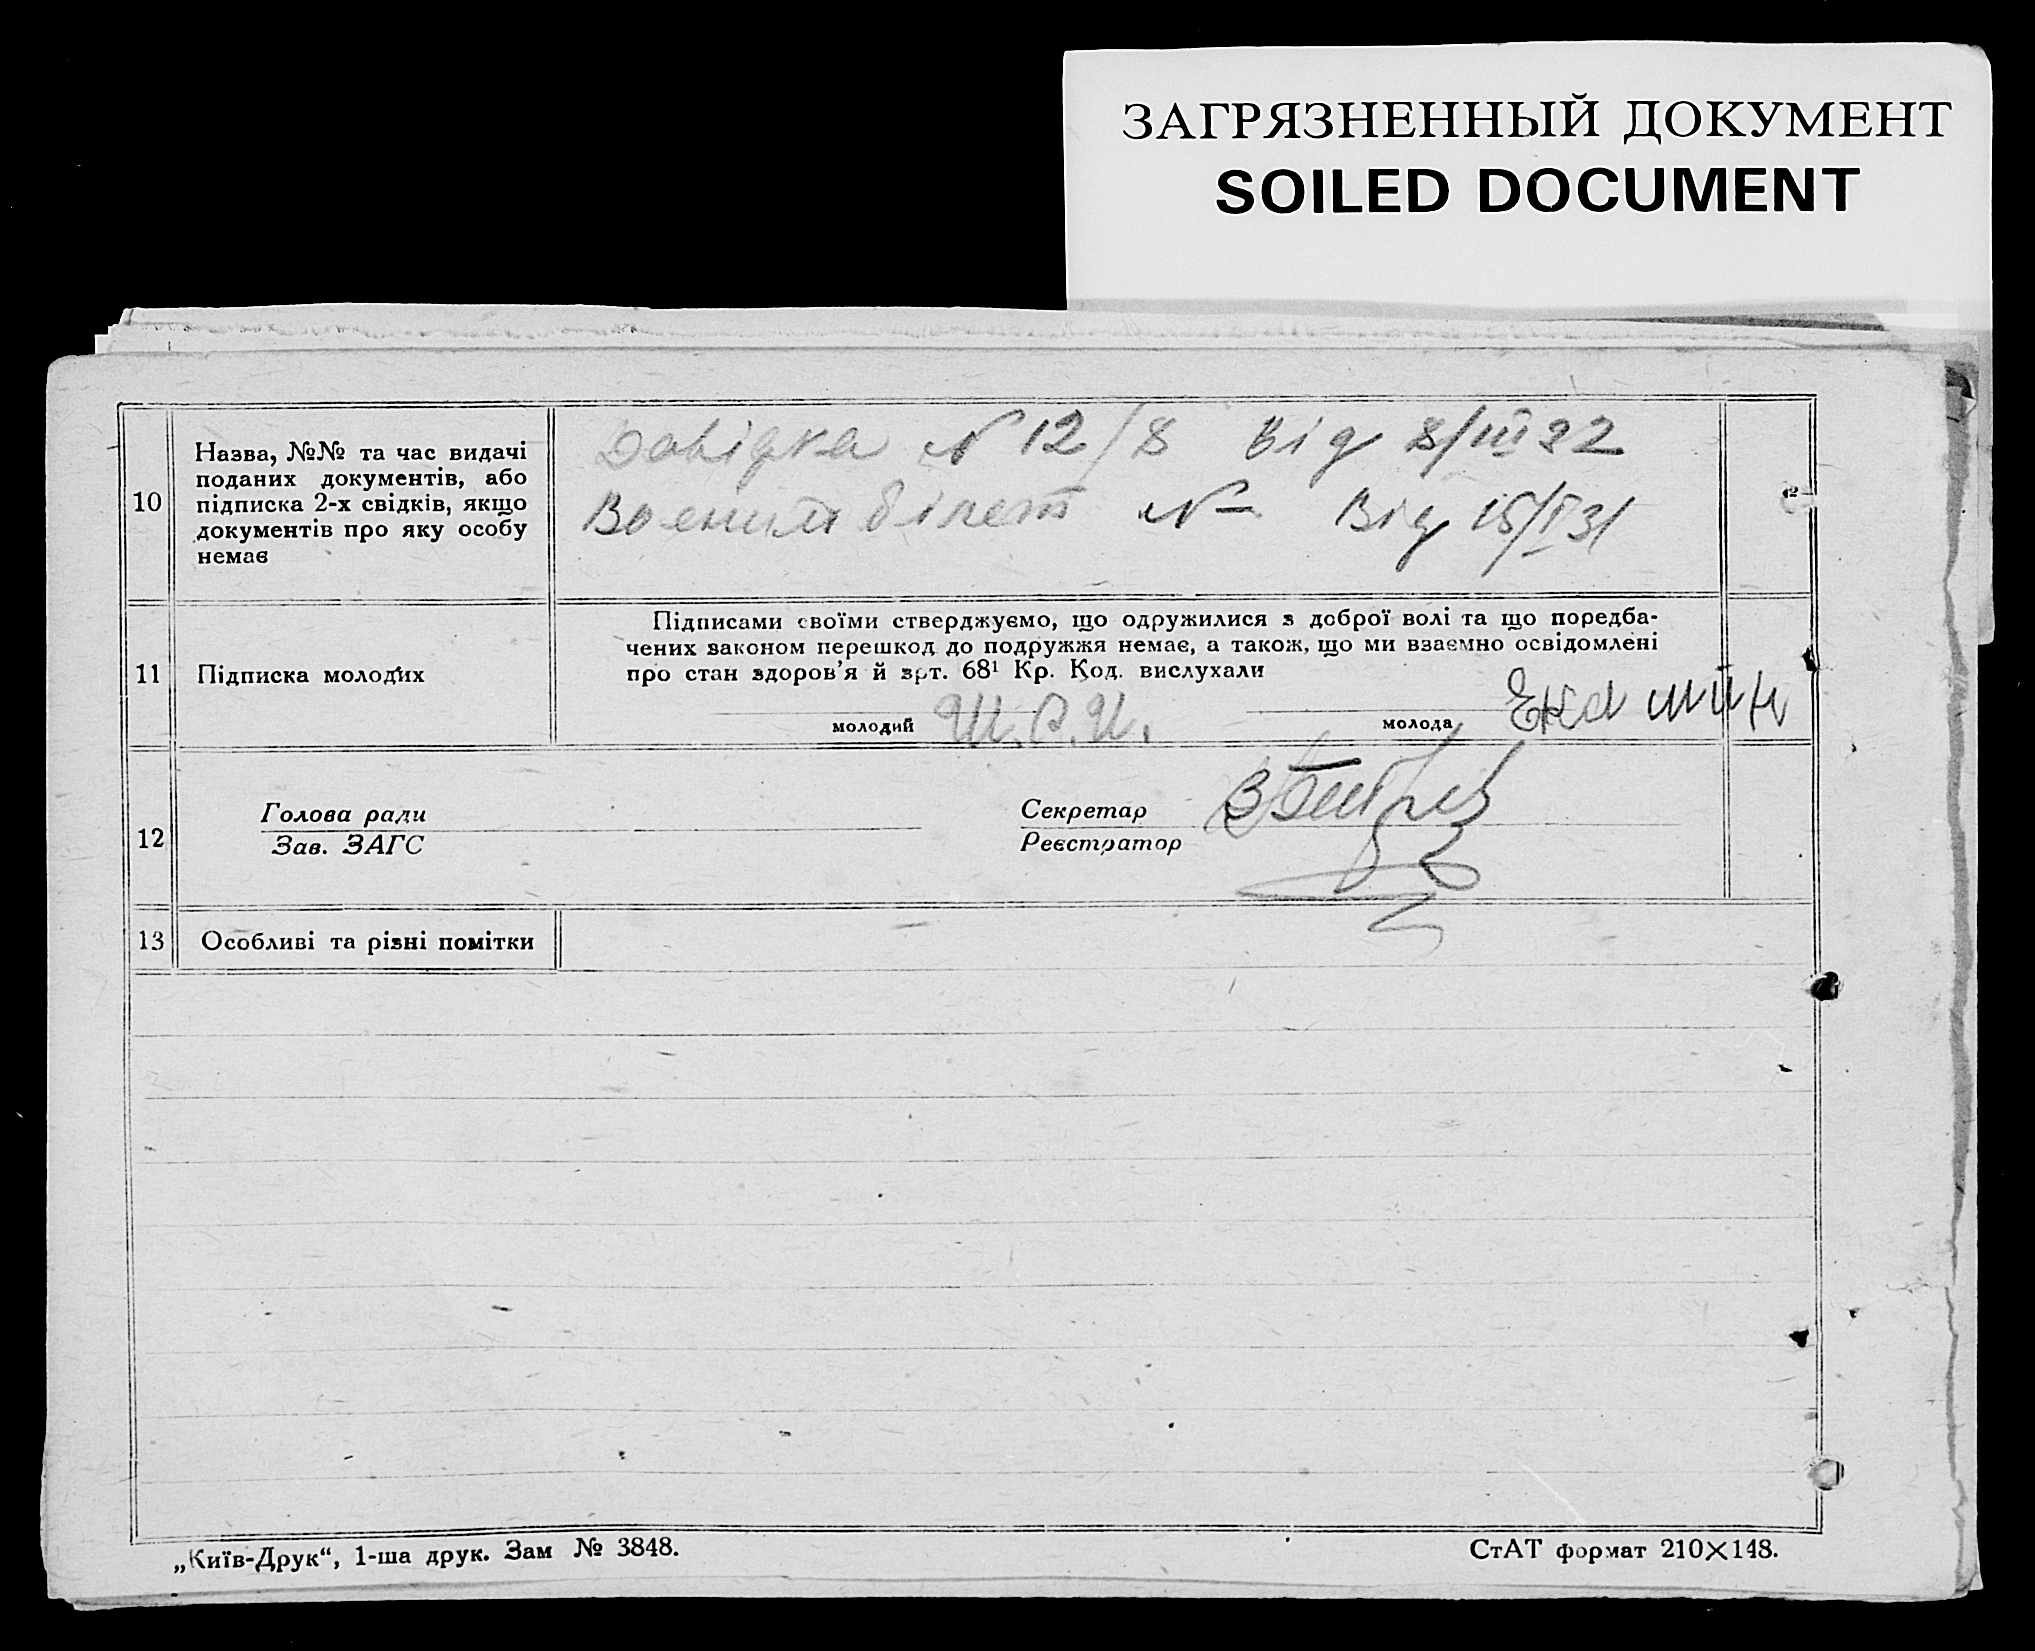 ЗАГРЯЗНЕННЫЙ ДОКУМЕНТ
SOILED DOCUMENT
10
Назва, №№ та час видачі
поданих документів, або
підписка 2-х свідків, якщо
документів про яку особу
немає
Довідка N 12/8 Від 8/III 32
Военний білет N – Від 15/I 31
11
Підписка молодих
Підписами своїми стверджуємо, що одружилися з доброї волі та що поредба-
чених законом перешкод до подружжя немає, а також, що ми взаємно освідомлені
про стан здоров'я й арт. 68¹ Кр. Код. вислухали
молодий Ш.О.И.
молода
12
Голова ради
Зав. ЗАГС
Секретар
Реєстратор
13
Особливі та різні помітки
„Київ-Друк“, 1-ша друк. Зам № 3848.
СтАТ формат 210×148.